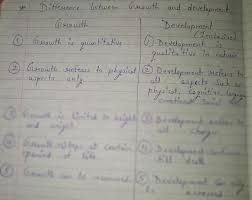 * Difference between Growth and development
Growth
Development
① Growth is quantitative
① Development is
qualitative in nature
② Growth refers to physical
aspects only
② Development refers to
all aspects such as
physical, Cognitive, language
emotional, social
③ Growth is limited to height
and weight
③ Development refers to
all change
④ Growth stops at certain
period of life
④ Development continues
till death
⑤ Growth can be measured
⑤ Development can only
be